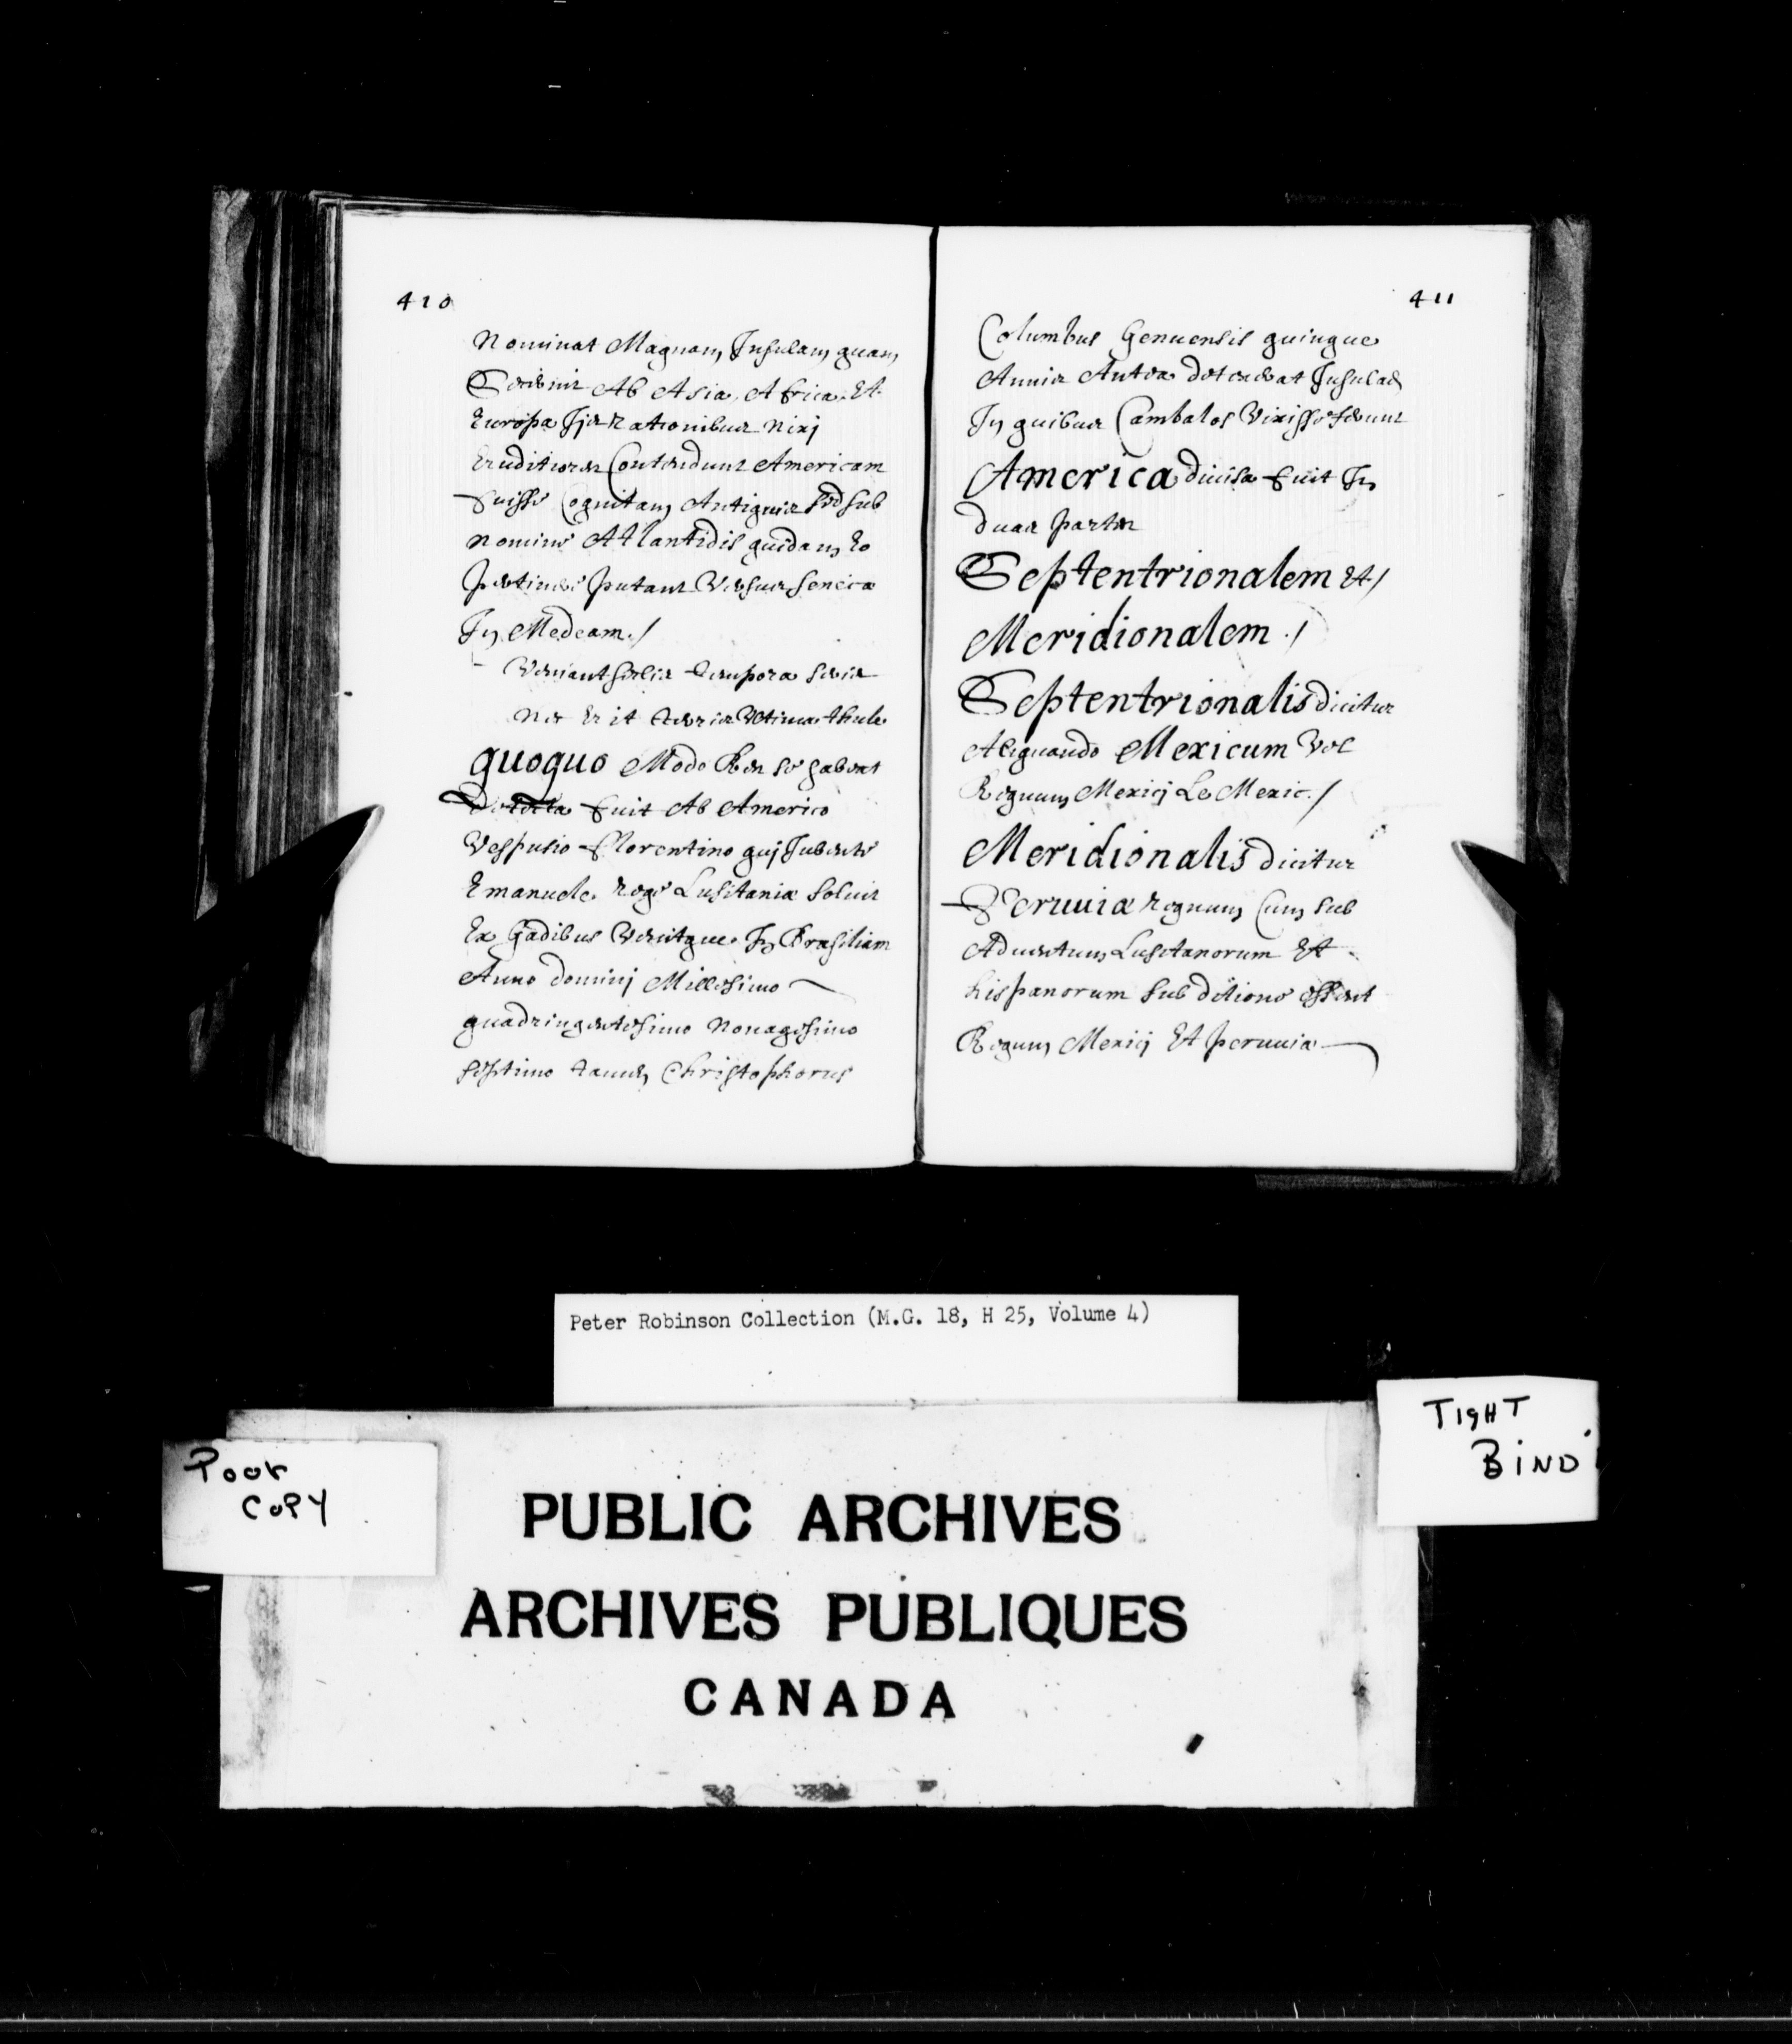 410
Nominat Magnam Insulam quam
Scribit Ab Asia, Africa, Et
Europa Ijs Rationibus Nixj
Eruditiores Contendunt Americam
fuisse Cognitam Antiquis sed sub
nomine Atlantidis quidam Eo
pertinere putant Versus Seneca
In Medeam./
Venient tempora seris
quoquo Modo Res se habeat
Detecta fuit Ab Americo
Vesputio Florentino quj Jubente
Emanuele Rege Lusitaniæ Soluit
Ex Gadibus Venitque In Brasiliam
Anno dominj Millesimo
quadringentesimo Nonagesimo
septimo tamen Christophorus
411
Columbus Genuensis quinque
Annis Antea detexerat Insulas
In quibus Cambalos Vixisse ferunt
America diuisa fuit In
duas partes
Septentrionalem Et/
Meridionalem ./
Septentrionalis dicitur
Aliquando Mexicum Vel
Regnum Mexicj Le Mexic./
Meridionalis dicitur
Peruuiæ Regnum Cum sub
Aduentum Lusitanorum Et
hispanorum sub ditione essent
Regum Mexicj Et peruuiæ
Peter Robinson Collection (M.G. 18, H 25, Volume 4)
TIGHT
BIND
Poor
COPY
PUBLIC ARCHIVES
ARCHIVES PUBLIQUES
CANADA